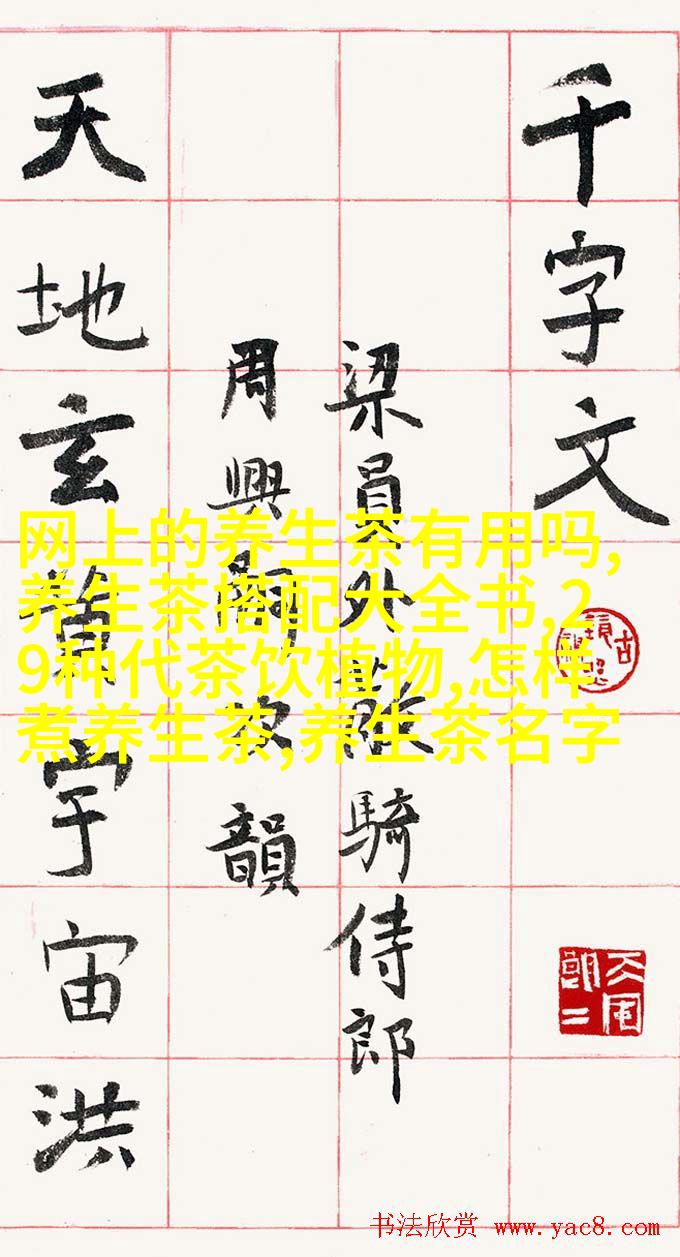 千字文
梁員外散騎侍郎
周興嗣次韻
天地玄黃宇宙洪
网上的养生茶有用吗,
养生茶搭配大全书,2
9种代茶饮植物,怎样
煮养生茶,养生茶名字
书法欣赏 www.yac8.com